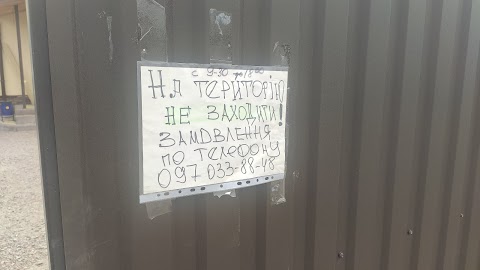 с 9-30 до 18-00
НА ТЕРИТОРІЮ
НЕ ЗАХОДИТИ!
ЗАМОВЛЕННЯ
ПО ТЕЛЕФОНУ
097 033-88-48